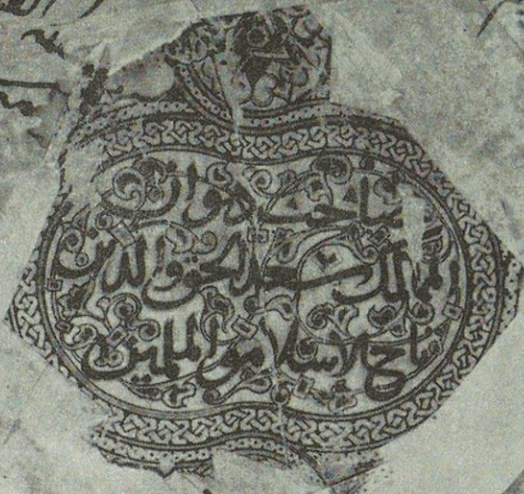 صاحب ديوان
الممالك سعد الحق والدين
تاج الاسلام والمسلمين